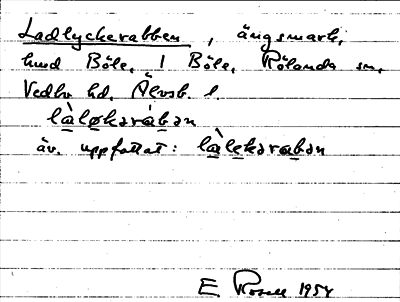 Ladlyckerabben, ängsmark,
hmd Böle, 1 Böle, Rölanda sn,
Vedbo hd. Älvsb. l.
làløkəràbən
äv. uppfattat: làlekərabən
E Rosell 1954